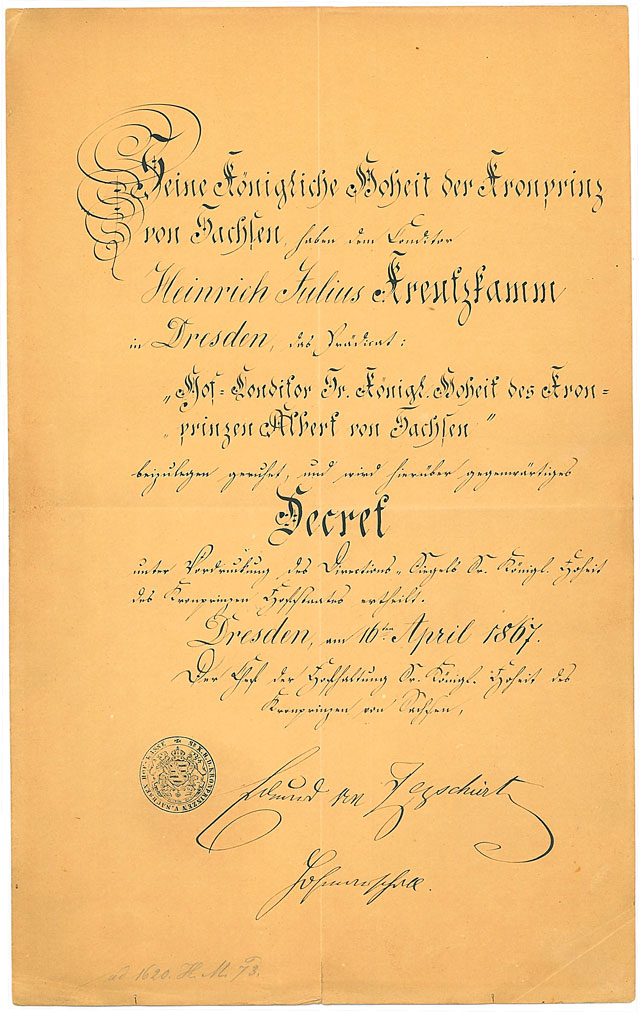 Seine Königliche Hoheit der Kronprinz
von Sachsen, haben dem Conditor
Heinrich Julius Kreutzkamm
in Dresden, das Prädicat:
„Hof-Conditor Sr. Königl. Hoheit des Kron=
prinzen Albert von Sachsen"
beizulegen geruhet, und wird hierüber gegenwärtiges
Decret
unter Vordruckung des Directions-Siegels Sr. Königl. Hoheit
des Kronprinzen Hofstaates ertheilt.
Dresden, am 16ten April 1867.
Der Chef der Hofhaltung Sr. Königl. Hoheit des
Kronprinzen von Sachsen,
von
Hofmarschall.
ad 1620. H. M. 73.